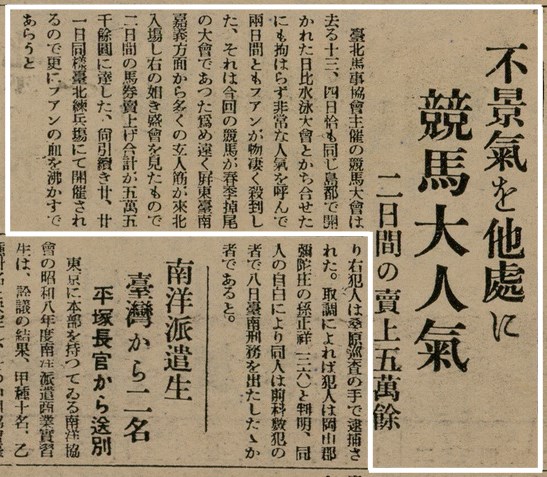 不景氣を他處に
競馬大人氣
二日間の賣上五萬餘
臺北馬事協會主催の競馬大會は
去る十三、四日恰も同じ島都で開
かれた日比水泳大會とかち合せた
にも拘はらず非常な人氣を呼んで
兩日間ともフアンが物凄く殺到し
た、それは今回の競馬が春季掉尾
の大會であつた爲め遠く屏東臺南
嘉義方面から多くの玄人筋が來北
入場し右の如き盛會を見たもので
二日間の馬券賣上げ合計が五萬五
千餘圓に達した、尙引續き廿、廿
一日同樣臺北練兵場にて開催され
るので更にフアンの血を沸かすで
あらうと
り右犯人は桑原巡査の手で逮捕さ
れた。取調によれば犯人は岡山郡
彌陀庄の孫正祥(三六)と判明、同
人の自白により同人は前科數犯の
者で八日臺南刑務を出たしたゝか
者であると。
南洋派遣生
臺灣から二名
平塚長官から送別
東京に本部を持つてゐる南洋協
會の昭和八年度南洋派遣商業實習
生は、詮議の結果、甲種十名、乙